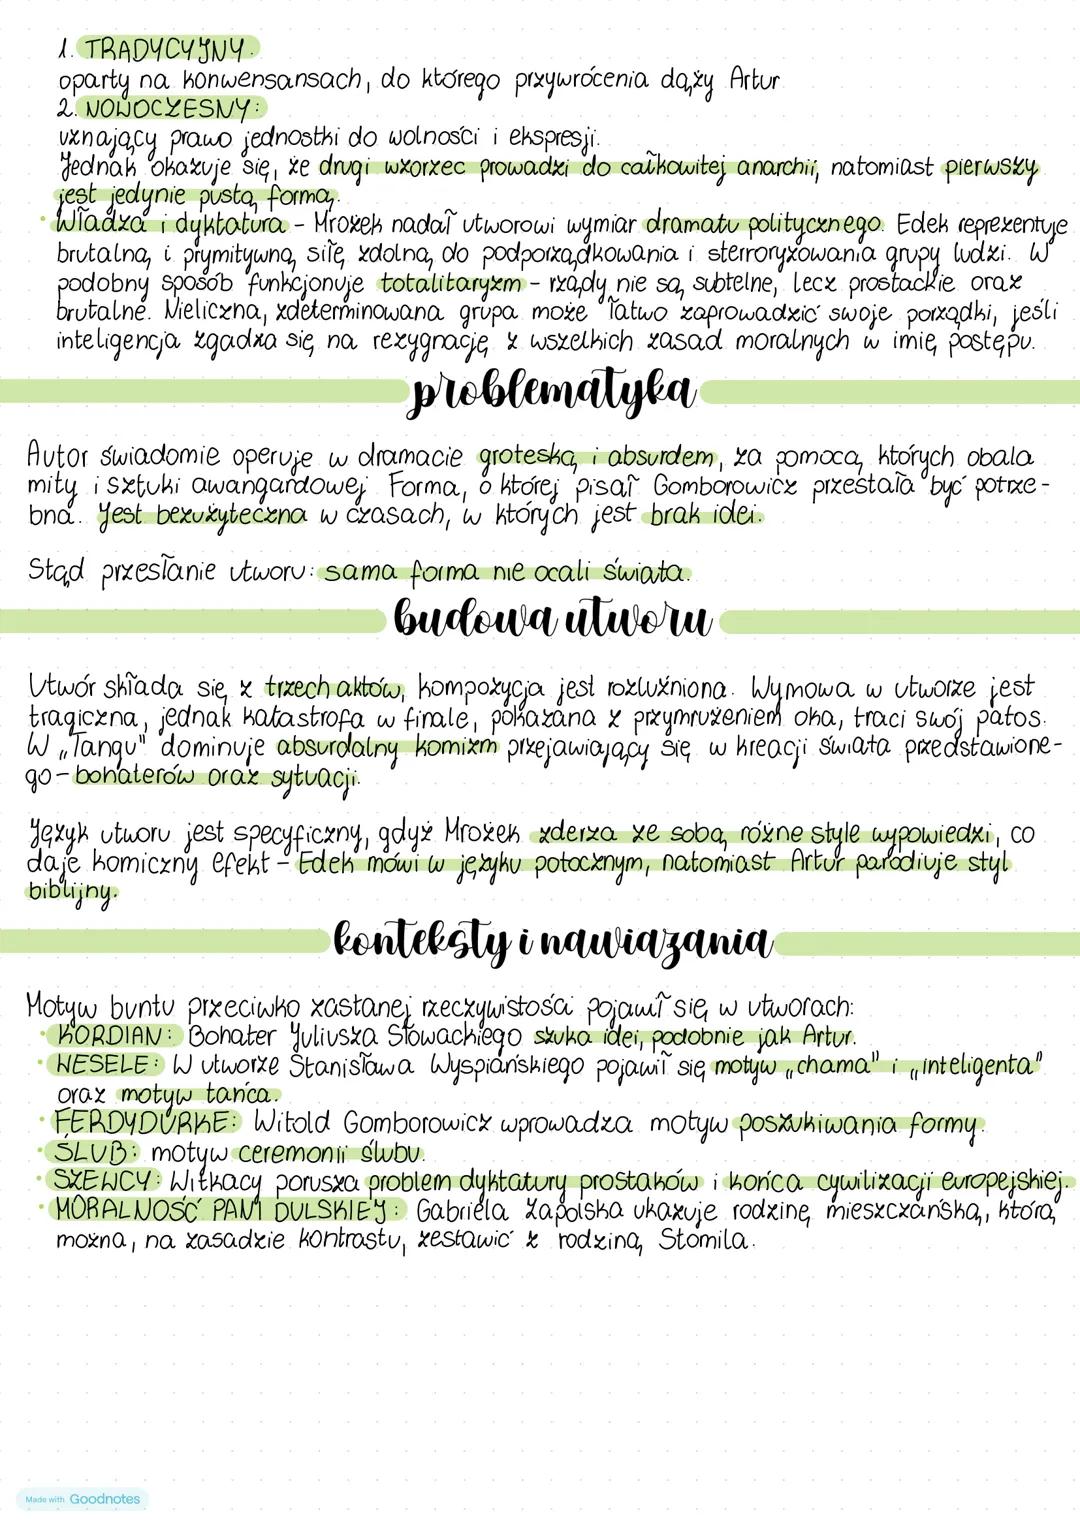 1. TRADYCYJNY.
oparty na konwensansach, do którego przywrócenia dąży Artur
2. NOWOCZESNY:
uznający prawo jednostki do wolności i ekspresji.
Jednak okazuje się, że drugi wzorzec prowadzi do całkowitej anarchii, natomiast pierwszy
jest jedynie pustą formą.
• Władza i dyktatura - Mrożek nadał utworowi wymiar dramatu politycznego. Edek reprezentuje
brutalną i prymitywną siłę zdolną do podporządkowania i sterroryzowania grupy ludzi. W
podobny sposób funkcjonuje totalitaryzm - rządy nie są subtelne, lecz prostackie oraz
brutalne. Nieliczna, zdeterminowana grupa może łatwo zaprowadzić swoje porządki, jeśli
inteligencja zgadza się na rezygnację z wszelkich zasad moralnych w imię postępu.
problematyka
Autor świadomie operuje w dramacie groteską i absurdem, za pomocą których obala
mity i sztuki awangardowej. Forma, o której pisał Gomborowicz przestała być potrze-
bna. Jest bezużyteczna w czasach, w których jest brak idei.
Stąd przesłanie utworu: sama forma nie ocali świata.
budowa utworu
Utwór składa się z trzech aktów, kompozycja jest rozluźniona. Wymowa w utworze jest
tragiczna, jednak katastrofa w finale, pokazana z przymrużeniem oka, traci swój patos.
W „Tangu" dominuje absurdalny komizm przejawiający się w kreacji świata przedstawione-
go - bohaterów oraz sytuacji.
Język utworu jest specyficzny, gdyż Mrożek zderza ze sobą różne style wypowiedzi, co
daje komiczny efekt - Edek mówi w języku potocznym, natomiast Artur parodiuje styl
biblijny.
konteksty i nawiazania
Motyw buntu przeciwko zastanej rzeczywistości pojawił się w utworach:
• KORDIAN: Bohater Juliusza Słowackiego szuka idei, podobnie jak Artur.
• WESELE: W utworze Stanisława Wyspiańskiego pojawił się motyw „chama" i „inteligenta"
oraz motyw tańca.
• FERDYDURKE: Witold Gomborowicz wprowadza motyw poszukiwania formy.
• ŚLUB: motyw ceremonii ślubu.
• SZEWCY: Witkacy porusza problem dyktatury prostaków i końca cywilizacji europejskiej.
• MORALNOŚĆ PANI DULSKIEJ: Gabriela Zapolska ukazuje rodzinę mieszczańską, którą
można, na zasadzie kontrastu, zestawić z rodziną Stomila.
Made with Goodnotes